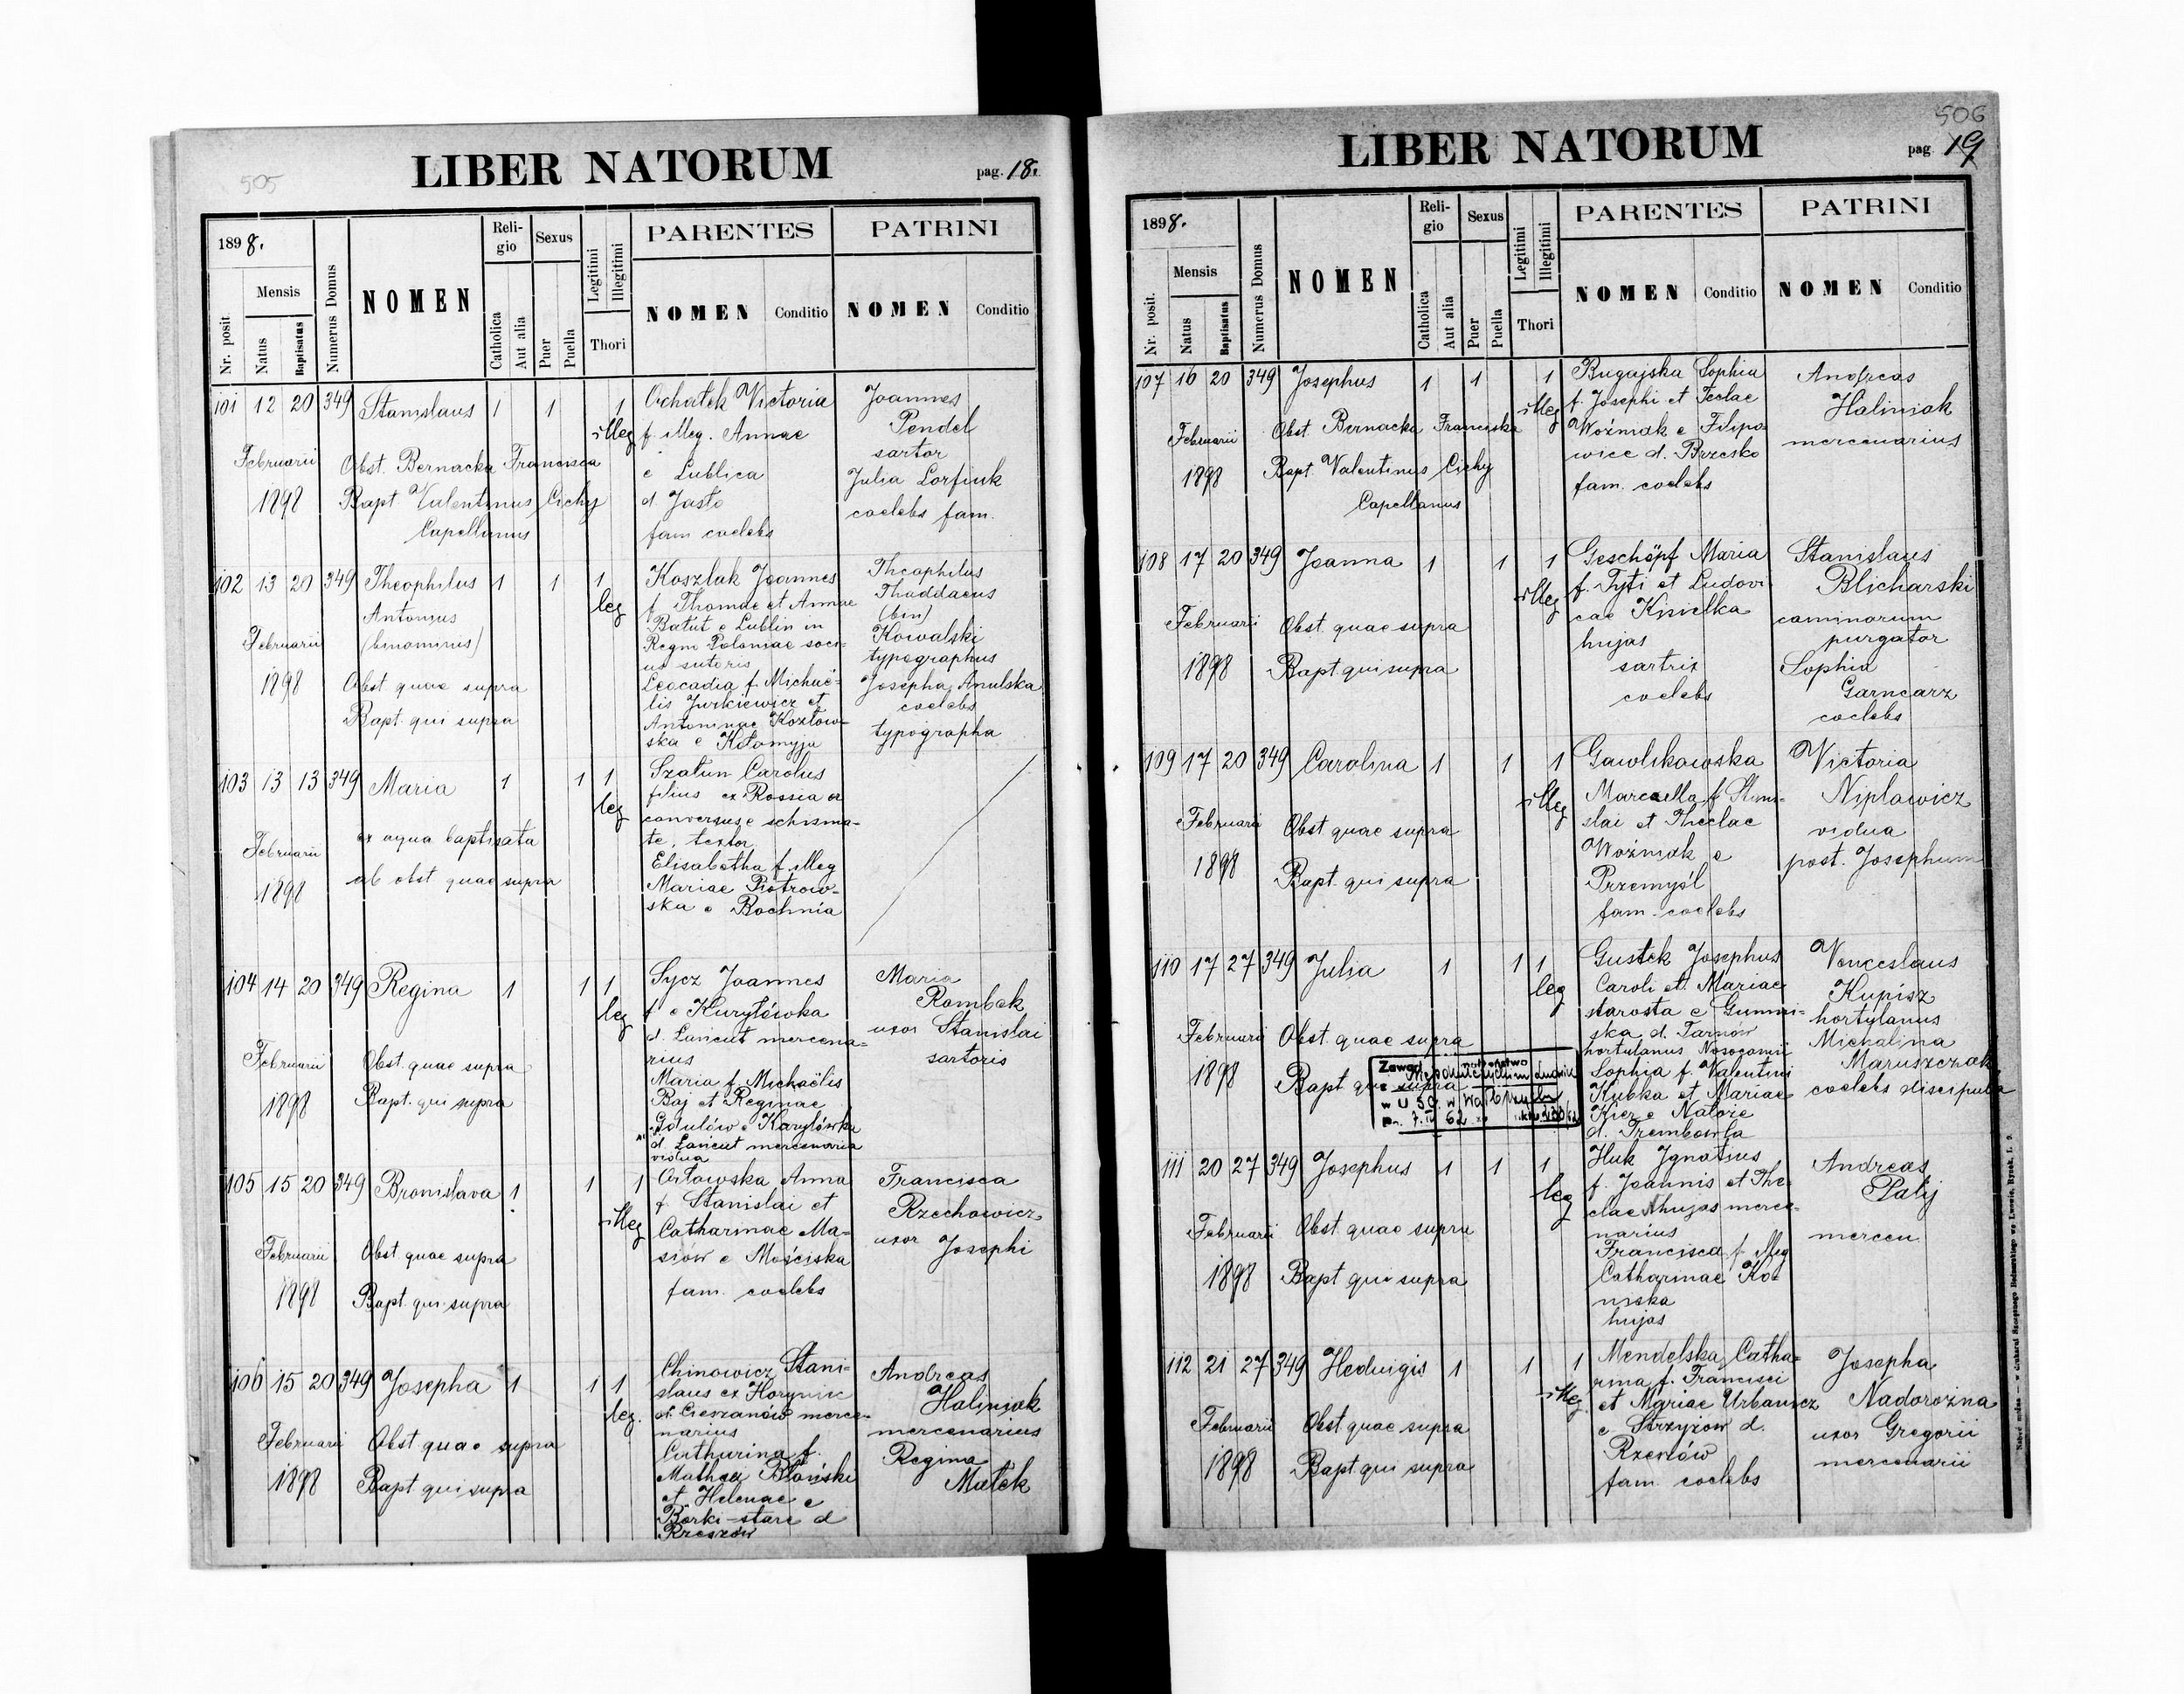 505
LIBER NATORUM
pag. 18.
1898.
Nr. posit.
Mensis
Natus
Baptisatus
Numerus Domus
NOMEN
Religio
Catholica
Aut alia
Sexus
Puer
Puella
Legitimi
Illegitimi
Thori
PARENTES
NOMEN
Conditio
PATRINI
NOMEN
Conditio
101 12 20 349 Stanislaus 1 1 1
illeg
Februarii
1898
Obst. Bernacka Francisca
Bapt Valentinus Cichy
Capellanus
Ochatek Victoria
f. illeg. Annae
e Lublica
d. Jasło
fam coelebs
Joannes
Pendel
sartor
Julia Lorfink
coelebs fam.
102 13 20 349 Theophilus 1 1 1
leg
Antonius
(binominis)
Februarii
1898
Obst quae supra
Bapt. qui supra
Koszlak Joannes
f. Thomae et Annae
Batut e Lublin in
Regno Poloniae soci-
us sutoris
Leocadia f. Michaë-
lis Jurkiewicz et
Antoninae Kozłow-
ska e Kołomyja
Theophilus
Thaddaeus
(bin)
Kowalski
typographus
Josepha Anulska
coelebs
typographa
103 13 13 349 Maria 1 1 1
leg
Februarii
1898
ex aqua baptisata
ab obst quae supra
Szatun Carolus
filius ex Rossia
conversus e schisma-
te, textor
Elisabetha f. illeg
Mariae Piotrow-
ska e Bochnia
104 14 20 349 Regina 1 1 1
leg
Februarii
1898
Obst. quae supra
Bapt. qui supra
Sycz Joannes
f. e Kuryłówka
d. Łańcut mercena-
rius
Maria f. Michaëlis
Baj et Reginae
Gdulów e Kuryłówka
d. Łańcut mercenaria
vidua
Maria
Rombak
uxor Stanislai
sartoris
105 15 20 349 Bronislava 1 1 1
illeg
Februarii
1898
Obst quae supra
Bapt. qui supra
Orłowska Anna
f. Stanislai et
Catharinae Ma-
siów e Mościska
fam. coelebs
Francisca
Rzechowicz
uxor Josephi
106 15 20 349 Josepha 1 1 1
leg.
Februarii
1898
Obst quae supra
Bapt qui supra
Chinowicz Stani-
slaus ex Horyniec
d. Cieszanów merce-
narius
Catharina f.
Mathaei Błoński
et Helenae e
Borki-stare d
Rzeszów
Andreas
Haliniak
mercenarius
Regina
Matek
506
LIBER NATORUM
pag. 19
1898.
Nr. posit.
Mensis
Natus
Baptisatus
Numerus Domus
NOMEN
Religio
Catholica
Aut alia
Sexus
Puer
Puella
Legitimi
Illegitimi
Thori
PARENTES
NOMEN
Conditio
PATRINI
NOMEN
Conditio
107 16 20 349 Josephus 1 1 1
illeg
Februarii
1898
Obst. Bernacka Franciska
Bapt. Valentinus Cichy
Capellanus
Bugajska Sophia
f. Josephi et Teclae
Woźniak e Filipo
wice d. Brzesko
fam. coelebs
Andreas
Haliniak
mercenarius
108 17 20 349 Joanna 1 1 1
illeg
Februarii
1898
Obst. quae supra
Bapt qui supra
Geschöpf Maria
f. Tyti et Ludovi
cae Kisielka
hujas
sartrix
coelebs
Stanislaus
Blicharski
caminorum
purgator
Sophia
Garncarz
coelebs
109 17 20 349 Carolina 1 1 1
illeg
Februarii
1898
Obst quae supra
Bapt. qui supra
Gawlikowska
Marcella f. Stani-
slai et Theclae
Woźniak e
Przemyśl
fam. coelebs
Victoria
Niplawicz
vidua
post. Josephum
110 17 27 349 Julia 1 1 1
leg
Februarii
1898
Obst. quae supra
Bapt qui supra
Gustek Josephus
Caroli et Mariae
starosta e Gumni-
ska d. Tarnów
hortulanus
Sophia f. Valentini
Kubka et Mariae
Kicz e Nałoże
d. Trembowla
Venceslaus
Kupisz
hortulanus
Michalina
Maruszczak
coelebs discipula
111 20 27 349 Josephus 1 1 1
leg
Februarii
1898
Obst quae supra
Bapt qui supra
Huk Ignatius
f. Joannis et The-
clae hujas merce-
narius
Francisca f. illeg
Catharinae Ko-
niska
hujas
Andreas
Patij
mercen
112 21 27 349 Hedvigis 1 1 1
illeg
Februarii
1898
Obst quae supra
Bapt qui supra
Mendelska Catha-
rina f. Francisci
et Mariae Urbanicz
e Strzyżów d.
Rzeszów
fam. coelebs
Josepha
Nadorożna
uxor Gregorii
mercenarii